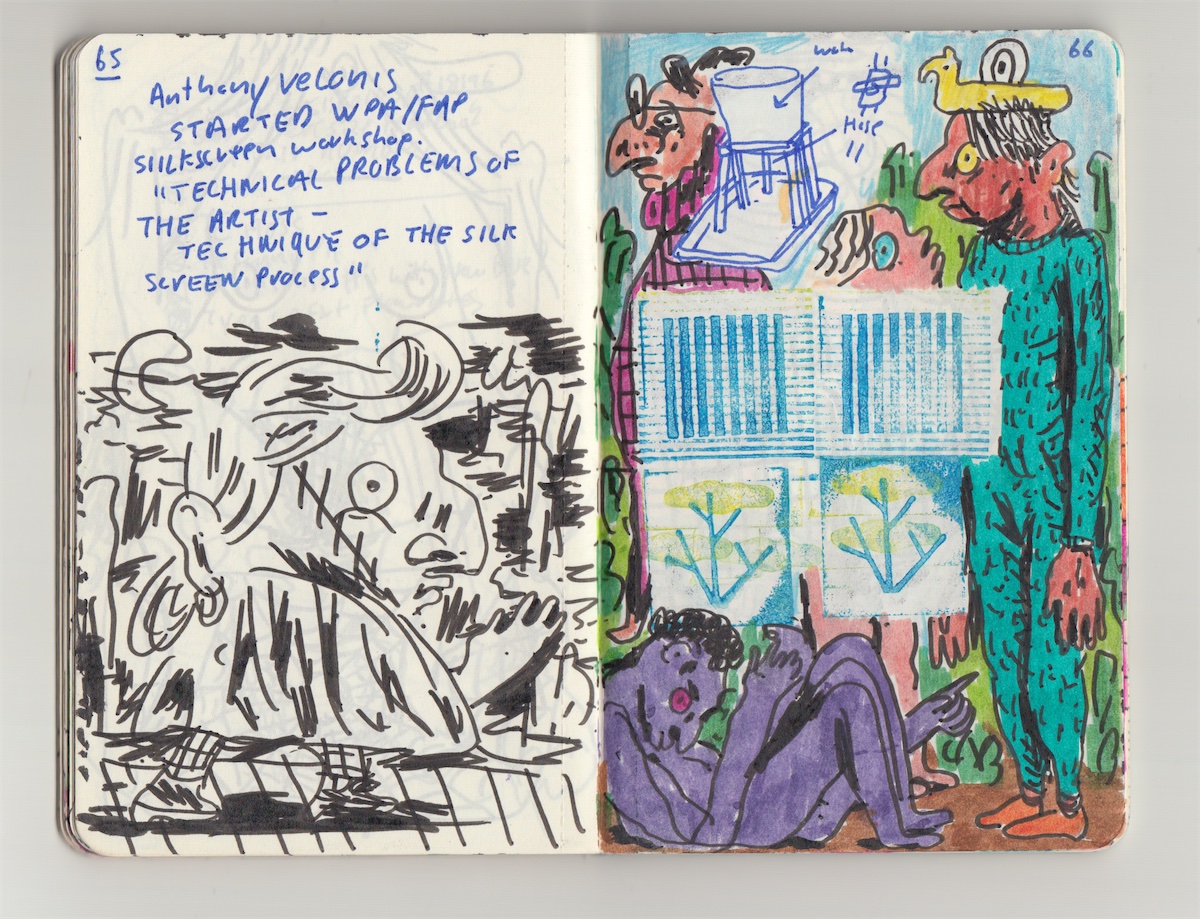 65
Anthony Velonis
STARTED WPA/FAP
SIILKSCREEN workshop.
"TECHNICAL PROBLEMS OF
THE ARTIST –
TECHNIQUE OF THE SILK
SCREEN PROCESS"
66
Hose